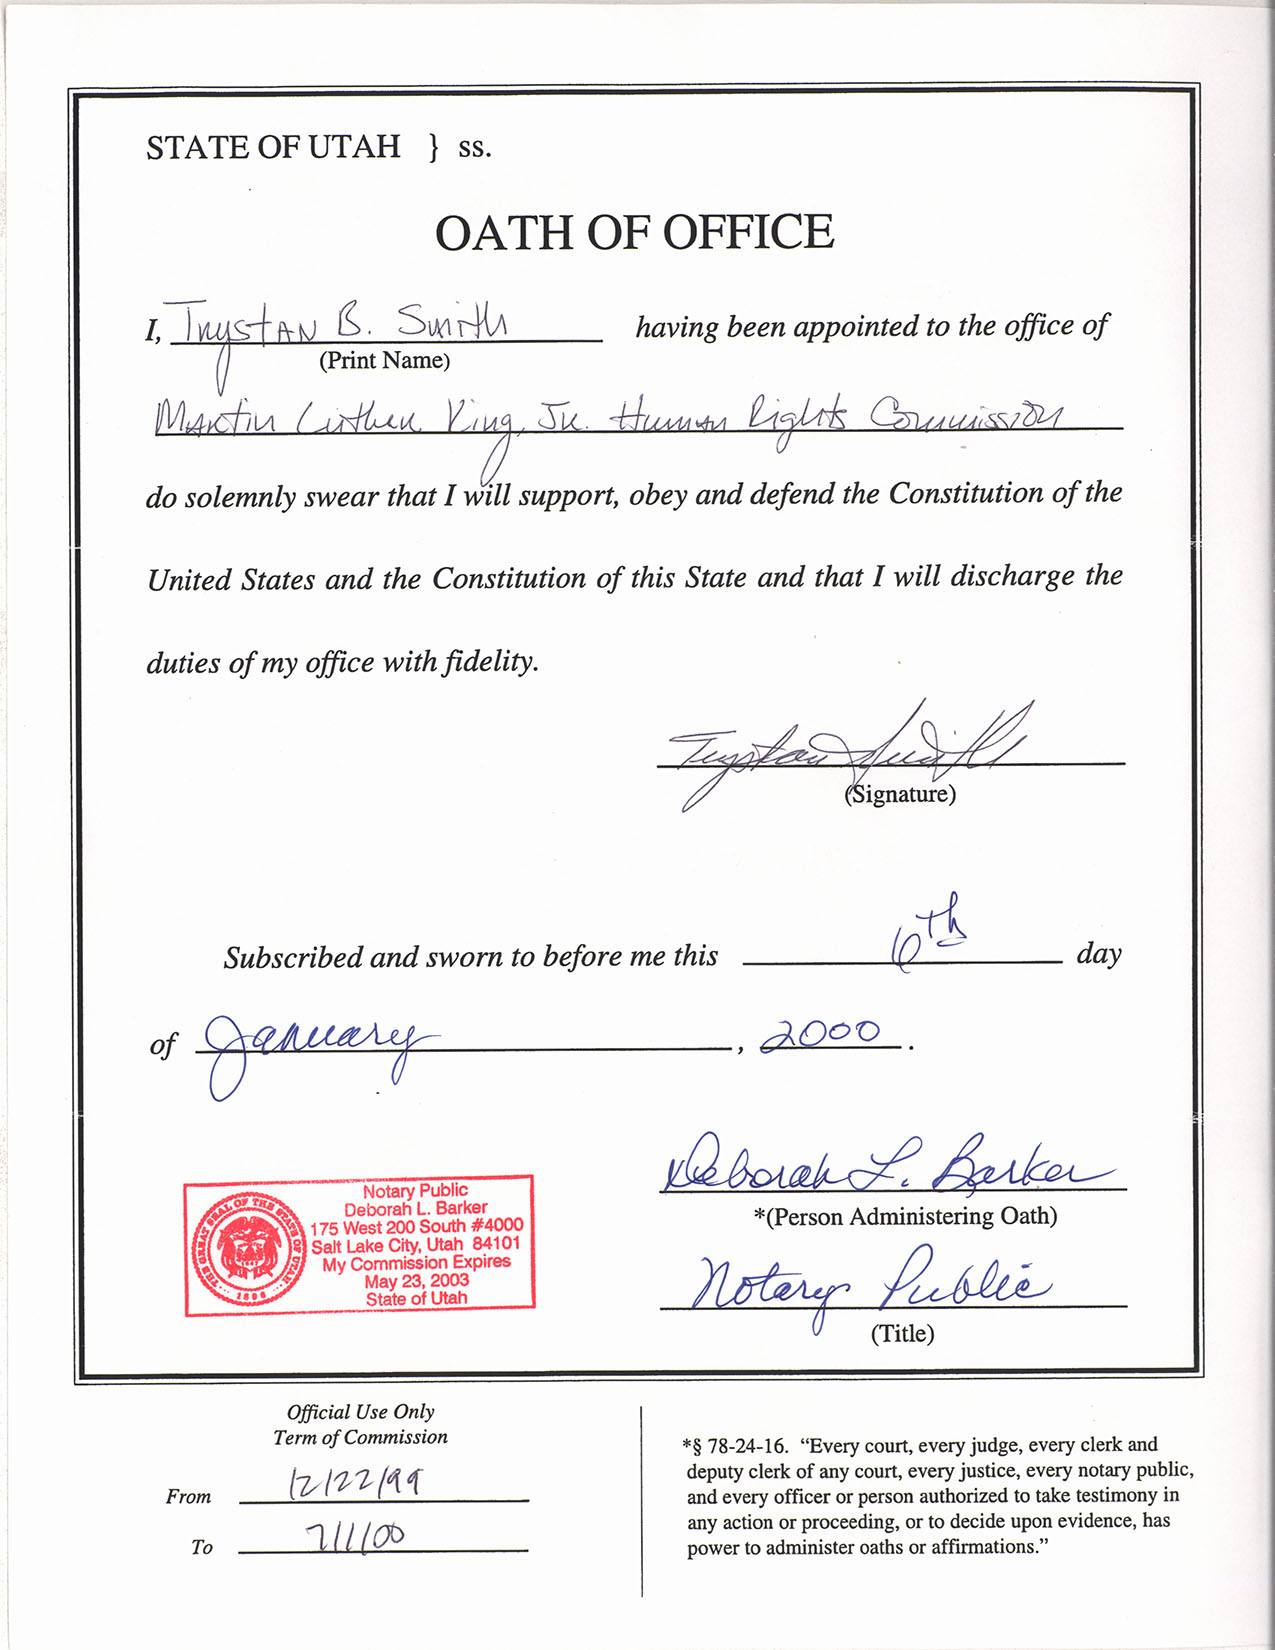 STATE OF UTAH } ss.
OATH OF OFFICE
I, Trystan B. Smith having been appointed to the office of
(Print Name)
Martin Luther King, Jr. Human Rights Commission
do solemnly swear that I will support, obey and defend the Constitution of the
United States and the Constitution of this State and that I will discharge the
duties of my office with fidelity.
Trystan Smith
(Signature)
Subscribed and sworn to before me this 6th day
of January, 2000.
Deborah L. Barker
*(Person Administering Oath)
Notary Public
(Title)
Notary Public
Deborah L. Barker
175 West 200 South #4000
Salt Lake City, Utah 84101
My Commission Expires
May 23, 2003
State of Utah
THE GREAT SEAL OF THE STATE OF UTAH
1896
Official Use Only
Term of Commission
From 12/22/99
To 7/1/00
*§ 78-24-16. “Every court, every judge, every clerk and
deputy clerk of any court, every justice, every notary public,
and every officer or person authorized to take testimony in
any action or proceeding, or to decide upon evidence, has
power to administer oaths or affirmations.”